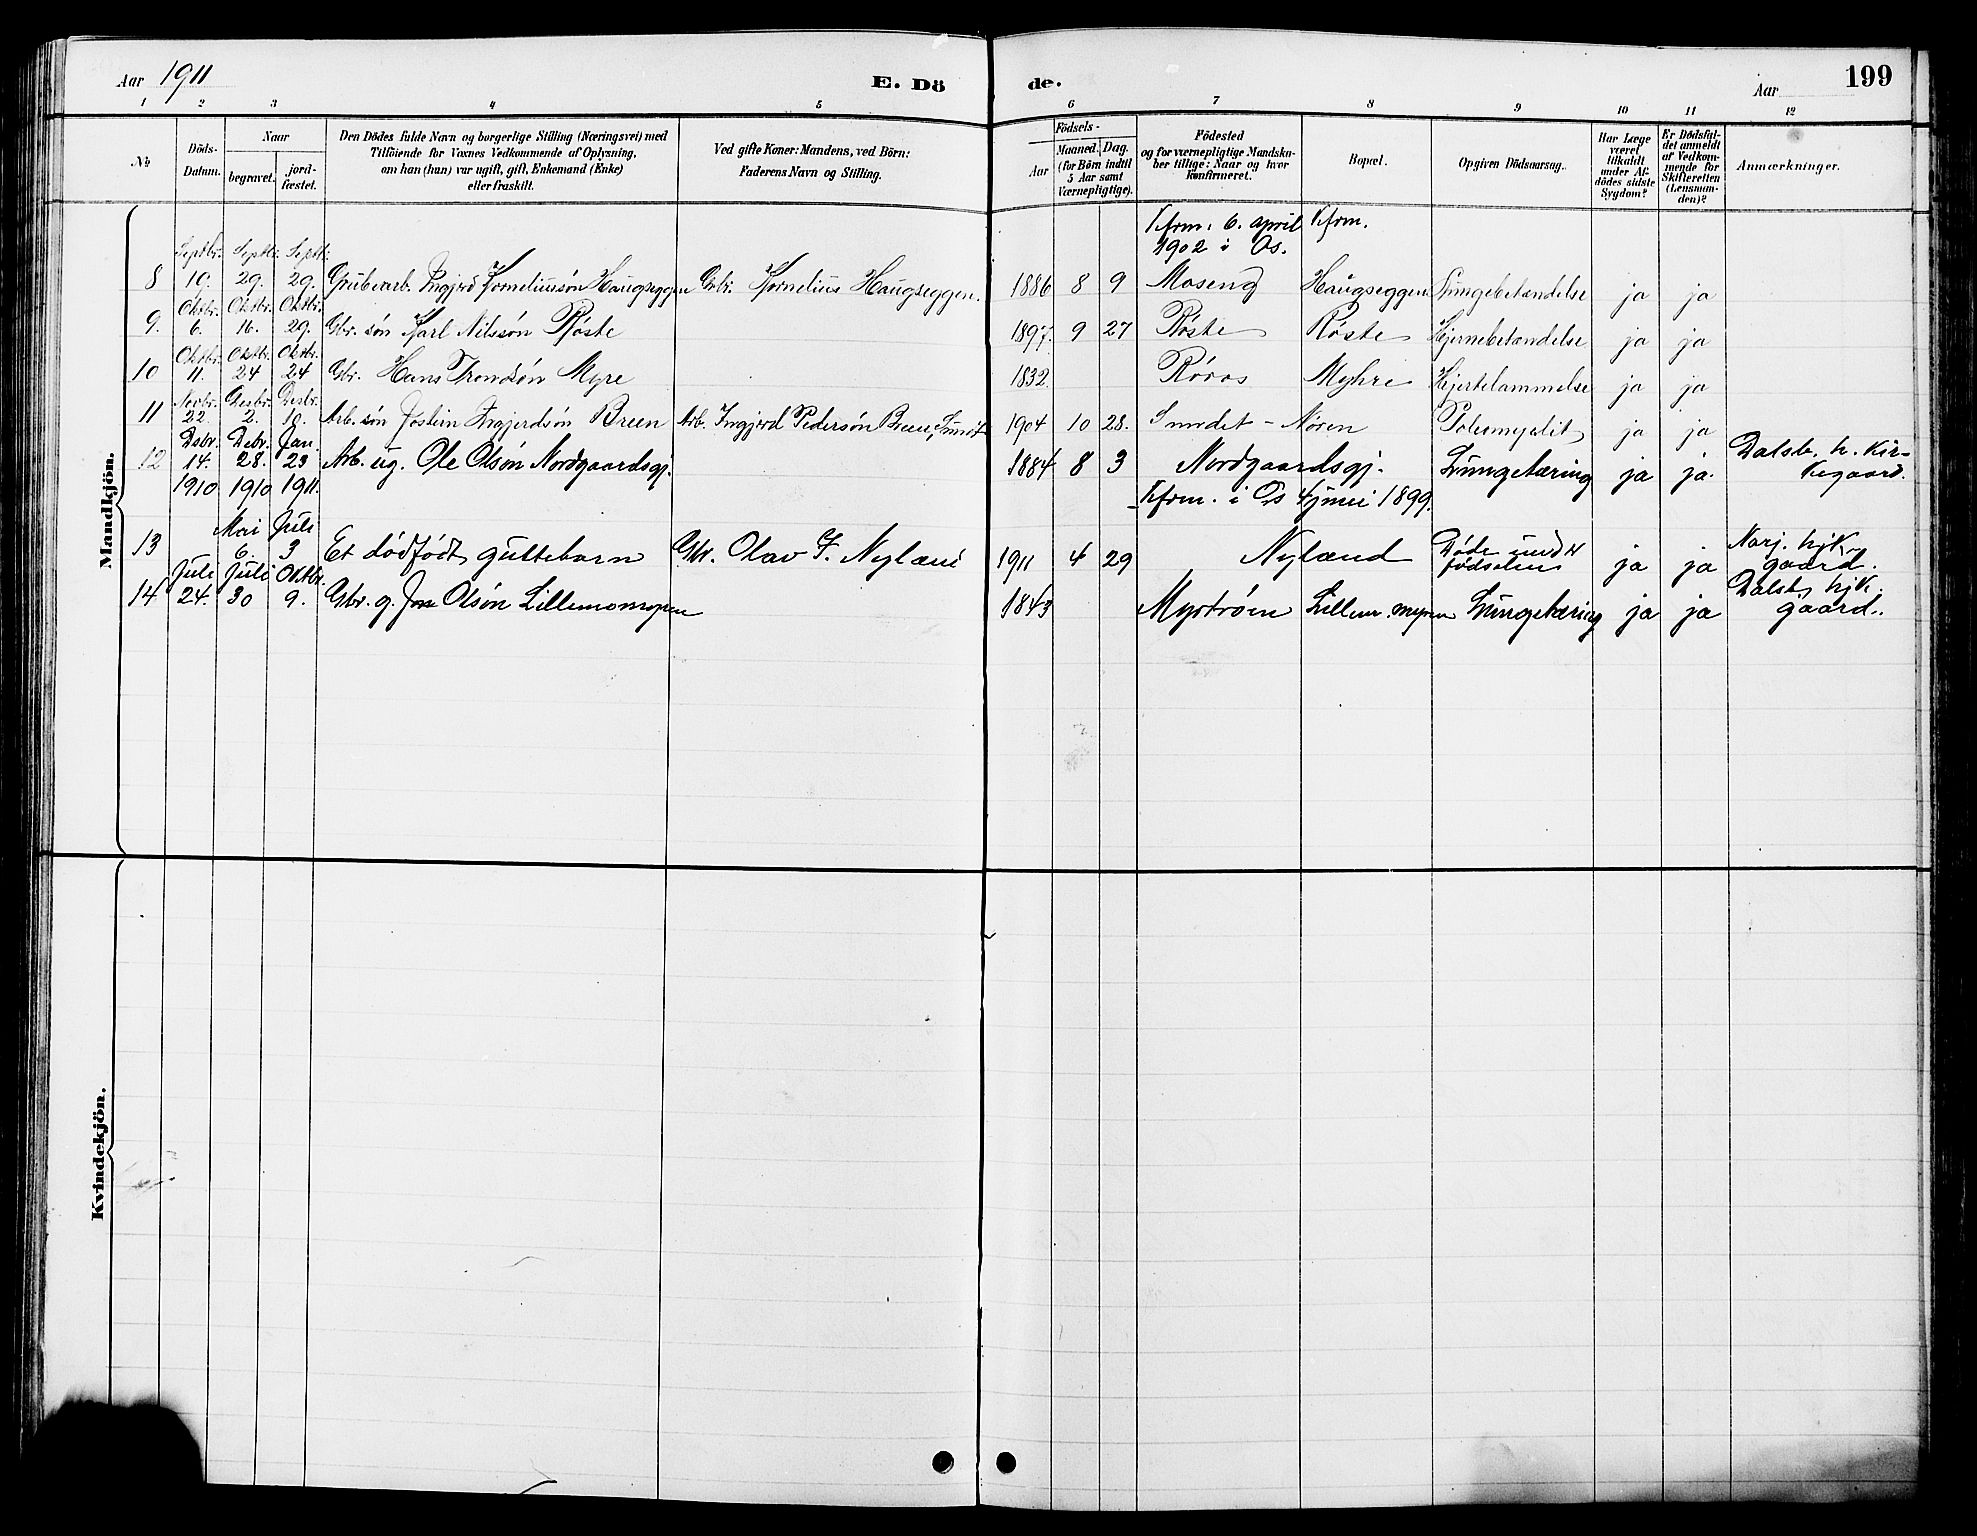 Aar 1911 E. Dö de. Aar 199
1 2 3 4 5 6 7 8 9 10 11 12
No
Döds-Datum.
Naar
begravet.
jord-fæstet.
Den Dödes fulde Navn og borgerlige Stilling (Næringsvei) med
Tilföiende for Voxnes Vedkommende af Oplysning,
om han (hun) var ugift, gift, Enkemand (Enke)
eller fraskilt.
Ved gifte Koner: Mandens, ved Börn:
Faderens Navn og Stilling.
Födsels-
Aar
Maaned. Dag.
(for Börn indtil
5 Aar samt
Værnepligtige).
Födested
og for værnepligtige Mandska-
ber tillige: Naar og hvor
konfirmeret.
Bopæl.
Opgiven Dödsaarsag.
Har Læge
været
tilkaldt
under Af-
dödes sidste
Sygdom?
Er Dödsfal-
det anmeldt
af Vedkom-
mende for
Skifteretten
(Lensman-
den)?
Anmærkninger.
Mandkjön.
Kfrm. 6. april Kfrm.
1902 i Os.
Septbr. Septbr. Septbr.
8 10. 29. 29. Grubearb. Ingjerd Korneliussön Haugseggen Gbr. Kornelius Haugseggen. 1886 8 9 Moseng Haugseggen Lungebetændelse ja ja
Oktbr. Oktbr. Oktbr.
9. 6. 16. 29. Gbr. søn Karl Nilssøn Røste 1897. 9 27 Røste Røste Hjernebetændelse ja ja
Oktbr. Oktbr. Oktbr.
10 11. 24 24 Gbr. Hans Trondsøn Myre 1832. Røros Myhre Hjertelammelse ja ja
Novbr. Desbr. Desbr.
11 22. 2. 10. Arb. søn Jostein Ingjerdsön Breen Arb. Ingjerd Pedersön Breen, 1904 10 28. Nøren Poliomyelit ja ja
Dsbr. Debr. Jan.
12 14. 28. 23 Arb. ug. Ole Olsøn Nordgaardsgj. 1884 8 3 Nordgaardsgj. Lungetæring ja ja. Dalsb. h. Kir-
kegaard.
1910 1910 1911. Kfrm. i Os 4 juni 1899.
Mai Juli
13 6. 3 Et dødfødt guttebarn Gbr. Olav J. Nyland 1911 4 29 Nyland Døde under
fødselen ja ja Narj. hjk.-
gaard.
Juli Juli Oktbr.
14 24. 30 9. Gbr. g. Jon Olsøn Lillemomyren 1843 Mystrøen Lillem. myren Lungetæring ja ja Dalsb. hjk.
gaard.
Kvindekjön.